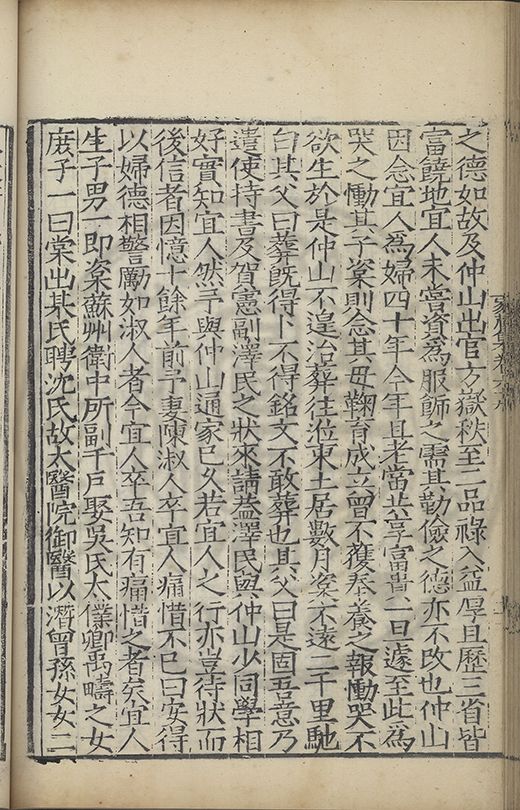 之德如故及仲山出官方嶽秩至二品祿入益厚且歷三省皆
富饒地宜人未嘗資爲服飾之需其勤儉之德亦不改也仲山
因念宜人爲婦四十年今年且老當共享富貴一旦遽至此爲
哭之慟其子楶則念其母鞠育成立曾不獲奉養之報慟哭不
欲生於是仲山不遑治葬往涖東土居數月楶不遠二千里馳
白其父曰葬旣得卜不得銘文不敢葬也其父曰是固吾意乃
遣使持書及賀憲副澤民之狀來請葢澤民與仲山少同學相
好實知宜人然予與仲山通家已久若宜人之行亦豈待狀而
後信者因憶十餘年前予妻陳淑人卒宜人痛惜不已曰安得
以婦德相警勵如淑人者今宜人卒吾知有痛惜之者矣宜人
生子男一即楶蘇州衛中所副千戶娶吳氏太僕卿禹疇之女
庶子一曰棠出某氏聘沈氏故太醫院御醫以潛曾孫女女二